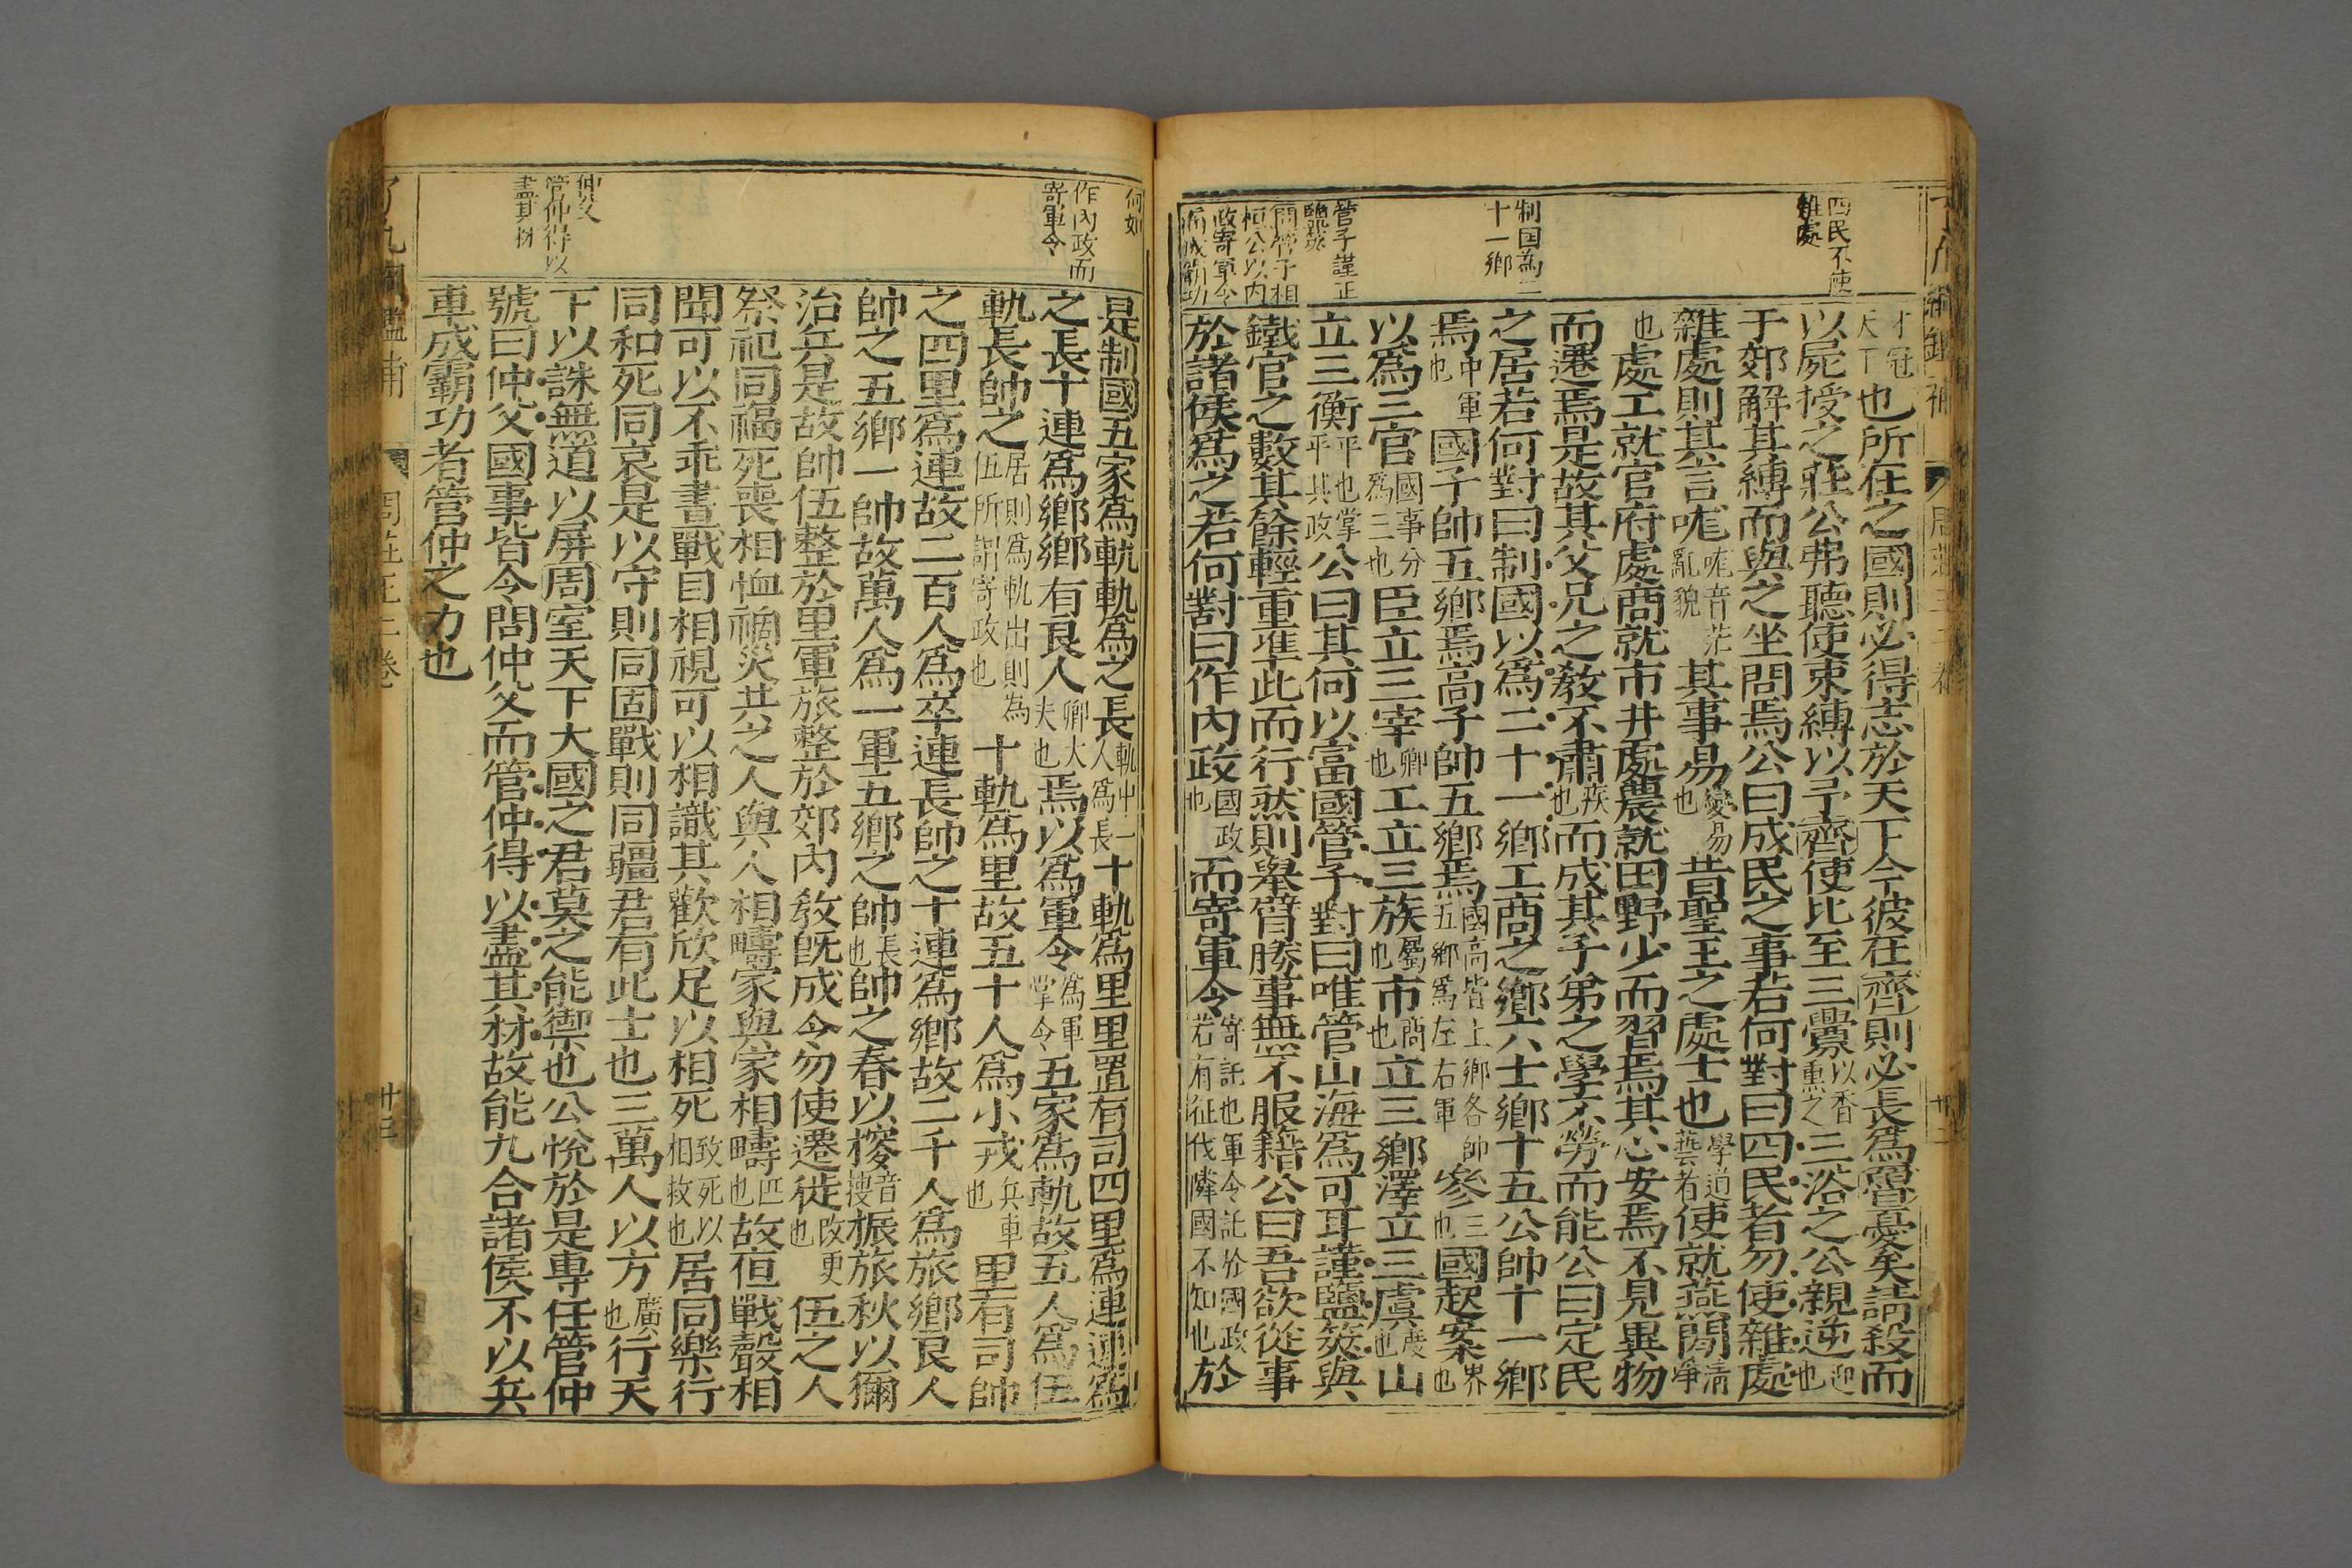 四民不使
雜處
制国為二
十一鄉
管子謹正
鹽筴
問管子相
桓公以內
政寄軍令
而成霸功
才冠天下也所在之國則必得志於天下今彼在齊則必長為魯憂矣請殺而
以屍授之莊公弗聽使束縛以予齊使比至三釁以香熏之三浴之公親逆迎也
于郊解其縛而與之坐問焉公曰成民之事若何對曰四民者勿使雜處
雜處則其言哤哤音茫亂貌其事易變易也昔聖王之處士也學道藝者使就燕閒清淨
也處工就官府處商就市井處農就田野少而習焉其心安焉不見異物
而遷焉是故其父兄之教不肅疾也而成其子弟之學不勞而能公曰定民
之居若何對曰制國以為二十一鄉工商之鄉六士鄉十五公帥十一鄉
焉中軍也國子帥五鄉焉高子帥五鄉焉國高皆上鄉各帥五鄉為左右軍參三也國起案界也
以為三官國事分為三也臣立三宰卿也工立三族屬也市商也立三鄉澤立三虞度也山
立三衡平也掌平其政公曰其何以富國管子對曰唯管山海為可耳謹鹽筴與
鐵官之數其餘輕重準此而行然則舉臂勝事無不服籍公曰吾欲從事
於諸侯為之若何對曰作內政國政也而寄軍令寄託也軍令託於國政若有征伐隣國不知也於
何如
作內政而
寄軍令
仲父
管仲得以
盡其材
是制國五家為軌軌為之長軌中一人為長十軌為里里置有司四里為連連為
之長十連為鄉鄉有良人卿大夫也焉以為軍令為軍掌令五家為軌故五人為伍
軌長帥之居則為軌出則為伍所謂寄政也十軌為里故五十人為小戎兵車也里有司帥
之四里為連故二百人為卒連長帥之十連為鄉故二千人為旅鄉良人
帥之五鄉一帥故萬人為一軍五鄉之帥長也帥之春以㮴音搜振旅秋以獮
治兵是故帥伍整於里軍旅整於郊內教既成令勿使遷徙改更也伍之人
祭祀同福死喪相恤禍災共之人與人相疇家與家相疇匹也故夜戰聲相
聞可以不乖晝戰目相視可以相識其歡欣足以相死致死以相救也居同樂行
同和死同哀是以守則同固戰則同彊君有此士也三萬人以方廣也行天
下以誅無道以屏周室天下大國之君莫之能禦也公悅於是專任管仲
號曰仲父國事皆令問仲父而管仲得以盡其材故能九合諸侯不以兵
車成霸功者管仲之力也